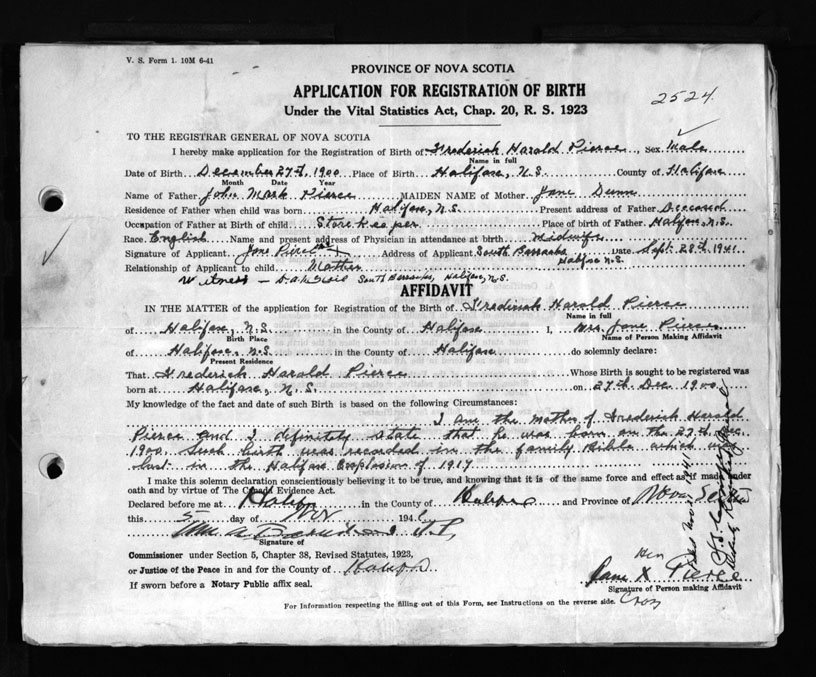 V. S. Form 1. 10M 6-41
PROVINCE OF NOVA SCOTIA
APPLICATION FOR REGISTRATION OF BIRTH
Under the Vital Statistics Act, Chap. 20, R. S. 1923
2524
TO THE REGISTRAR GENERAL OF NOVA SCOTIA
I hereby make application for the Registration of Birth of Frederick Harold Pierce, Sex Male
Name in full
Date of Birth December 27th, 1900 Place of Birth Halifax, N.S. County of Halifax
Month Date Year
Name of Father John Mark Pierce MAIDEN NAME of Mother Jane Dunn
Residence of Father when child was born Halifax, N.S. Present address of Father Deceased
Occupation of Father at Birth of child Storekeeper Place of birth of Father Halifax, N.S.
Race English Name and present address of Physician in attendance at birth midwife
Signature of Applicant Jane Pierce X Address of Applicant South Barracks Halifax N.S. Date Sept. 28th, 1941
Relationship of Applicant to child Mother
Witness - South Barracks, Halifax, N.S.
AFFIDAVIT
IN THE MATTER of the application for Registration of the Birth of Frederick Harold Pierce
Name in full
of Halifax, N.S. in the County of Halifax I, Mrs. Jane Pierce
Birth Place Name of Person Making Affidavit
of Halifax, N.S. in the County of Halifax do solemnly declare:
Present Residence
That Frederick Harold Pierce Whose Birth is sought to be registered was
born at Halifax, N.S. on 27th Dec. 1900
My knowledge of the fact and date of such Birth is based on the following Circumstances:
I am the mother of Frederick Harold
Pierce and I definitely state that he was born on the 27th Dec.
1900. Such birth was recorded in the family Bible which was
lost in the Halifax Explosion of 1917
I make this solemn declaration conscientiously believing it to be true, and knowing that it is of the same force and effect as if made under
oath and by virtue of The Canada Evidence Act.
Declared before me at Halifax in the County of Halifax and Province of Nova Scotia
this 5 day of Nov 194
J.P.
Signature of
Commissioner under Section 5, Chapter 38, Revised Statutes, 1923,
or Justice of the Peace in and for the County of Halifax
If sworn before a Notary Public affix seal.
Her
Jane X Pierce
Signature of Person making Affidavit
Cross
For Information respecting the filling out of this Form, see Instructions on the reverse side.